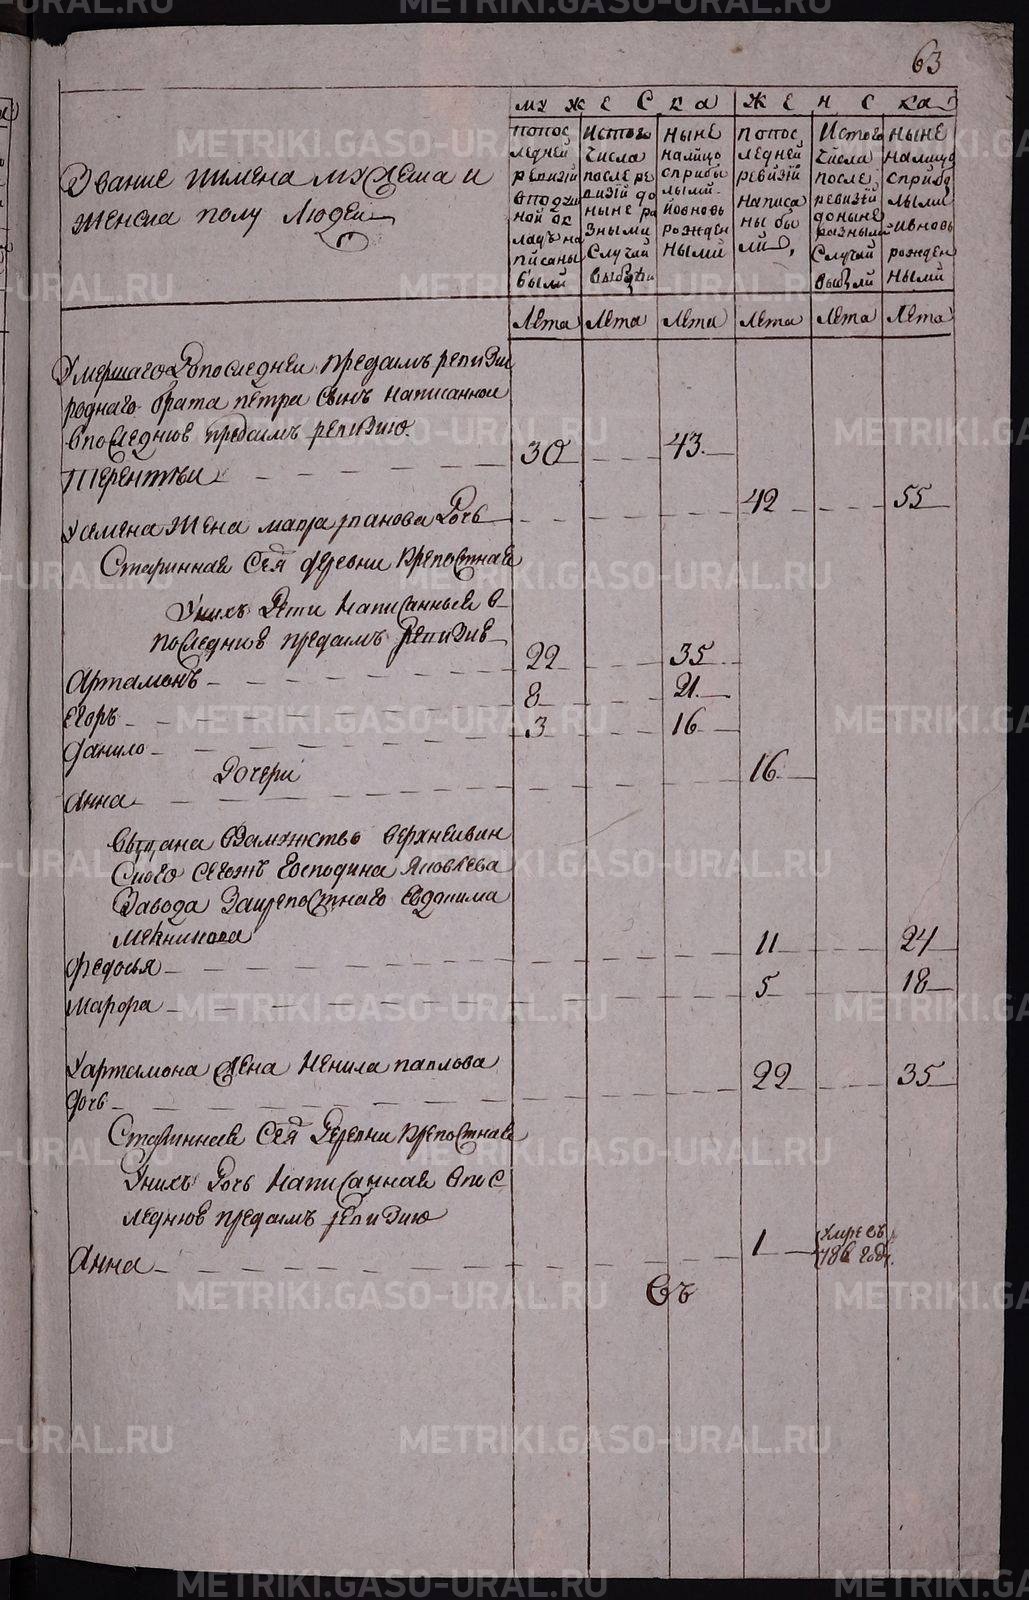 63
мужеска женска
Звание и имена мужеска и
женска полу людей
попос
ледней
ревизии
в подуш
ной ок
ладъ на
писаны
были
Истого
числа
после ре
визий до
ныне ра
зными
случаи
выбыли
ныне
налицо
сприбы
лыми
ивновь
рожден
ными
попос
ледней
ревизии
написа
ны бы
ли
Истого
числа
после
ревизий
доныне
разными
случаи
выбули
ныне
налицо
сприбы
лыми
ивновь
рожден
ными
Лета Лета Лета Лета Лета Лета
Умершаго допоследней предсимъ ревизии
роднаго брата петра сынъ написанной
впоследнюю предсимъ ревизию
Терентеи 30 43
Унего жена мавра панова дочь 42 55
Старинная сея деревни крепостная
Унихъ дети написанныя в
последнюю предсимъ ревизию
Артамонъ 22 35
Егоръ 8 21
Данило 3 16
Дочери
Анна 16
Выдана взамужство верхнеивин
скаго господина Яковлева
Завода закрепостнаго евдокима
Федосья 11 24
Марфа 5 18
Уартамона жена Ненила павлова
дочь 22 35
Старинная сея деревни крепостная
Унихъ дочь написанная впос
леднюю предсимъ ревизию
Анна 1 умре въ
786 годе
Въ
METRIKI.GASO-URAL.RU